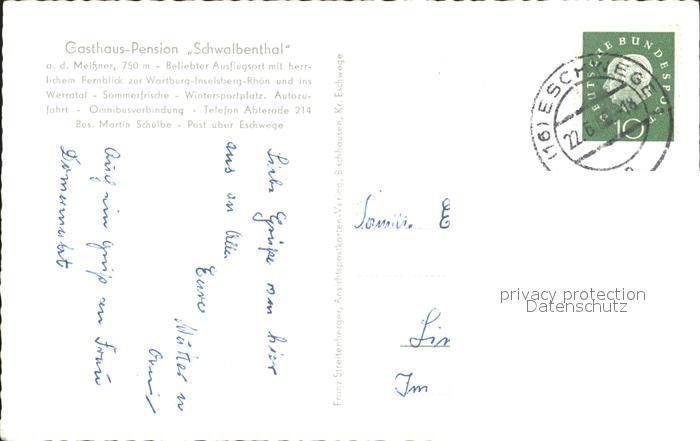 Gasthaus-Pension „Schwalbenthal“
a. d. Meißner, 750 m - Beliebter Ausflugsort mit herr-
lichem Fernblick zur Wartburg-Inselsberg-Rhön und ins
Werratal - Sommerfrische - Wintersportplatz. Autozu-
fahrt - Omnibusverbindung - Telefon Abterode 214
Bes. Martin Schülbe - Post über Eschwege
Liebe Grüße von hier
aus an Alle
Eure Mutter u
Omi
Auch ein Gruß an Frau
Franz Streitenberger, Ansichtspostkarten-Verlag, Bischhausen, Kr. Eschwege
DEUTSCHE BUNDESPOST
10
(16) ESCHWEGE
22.6.
Famil. E
Lin
Im
privacy protection
Datenschutz